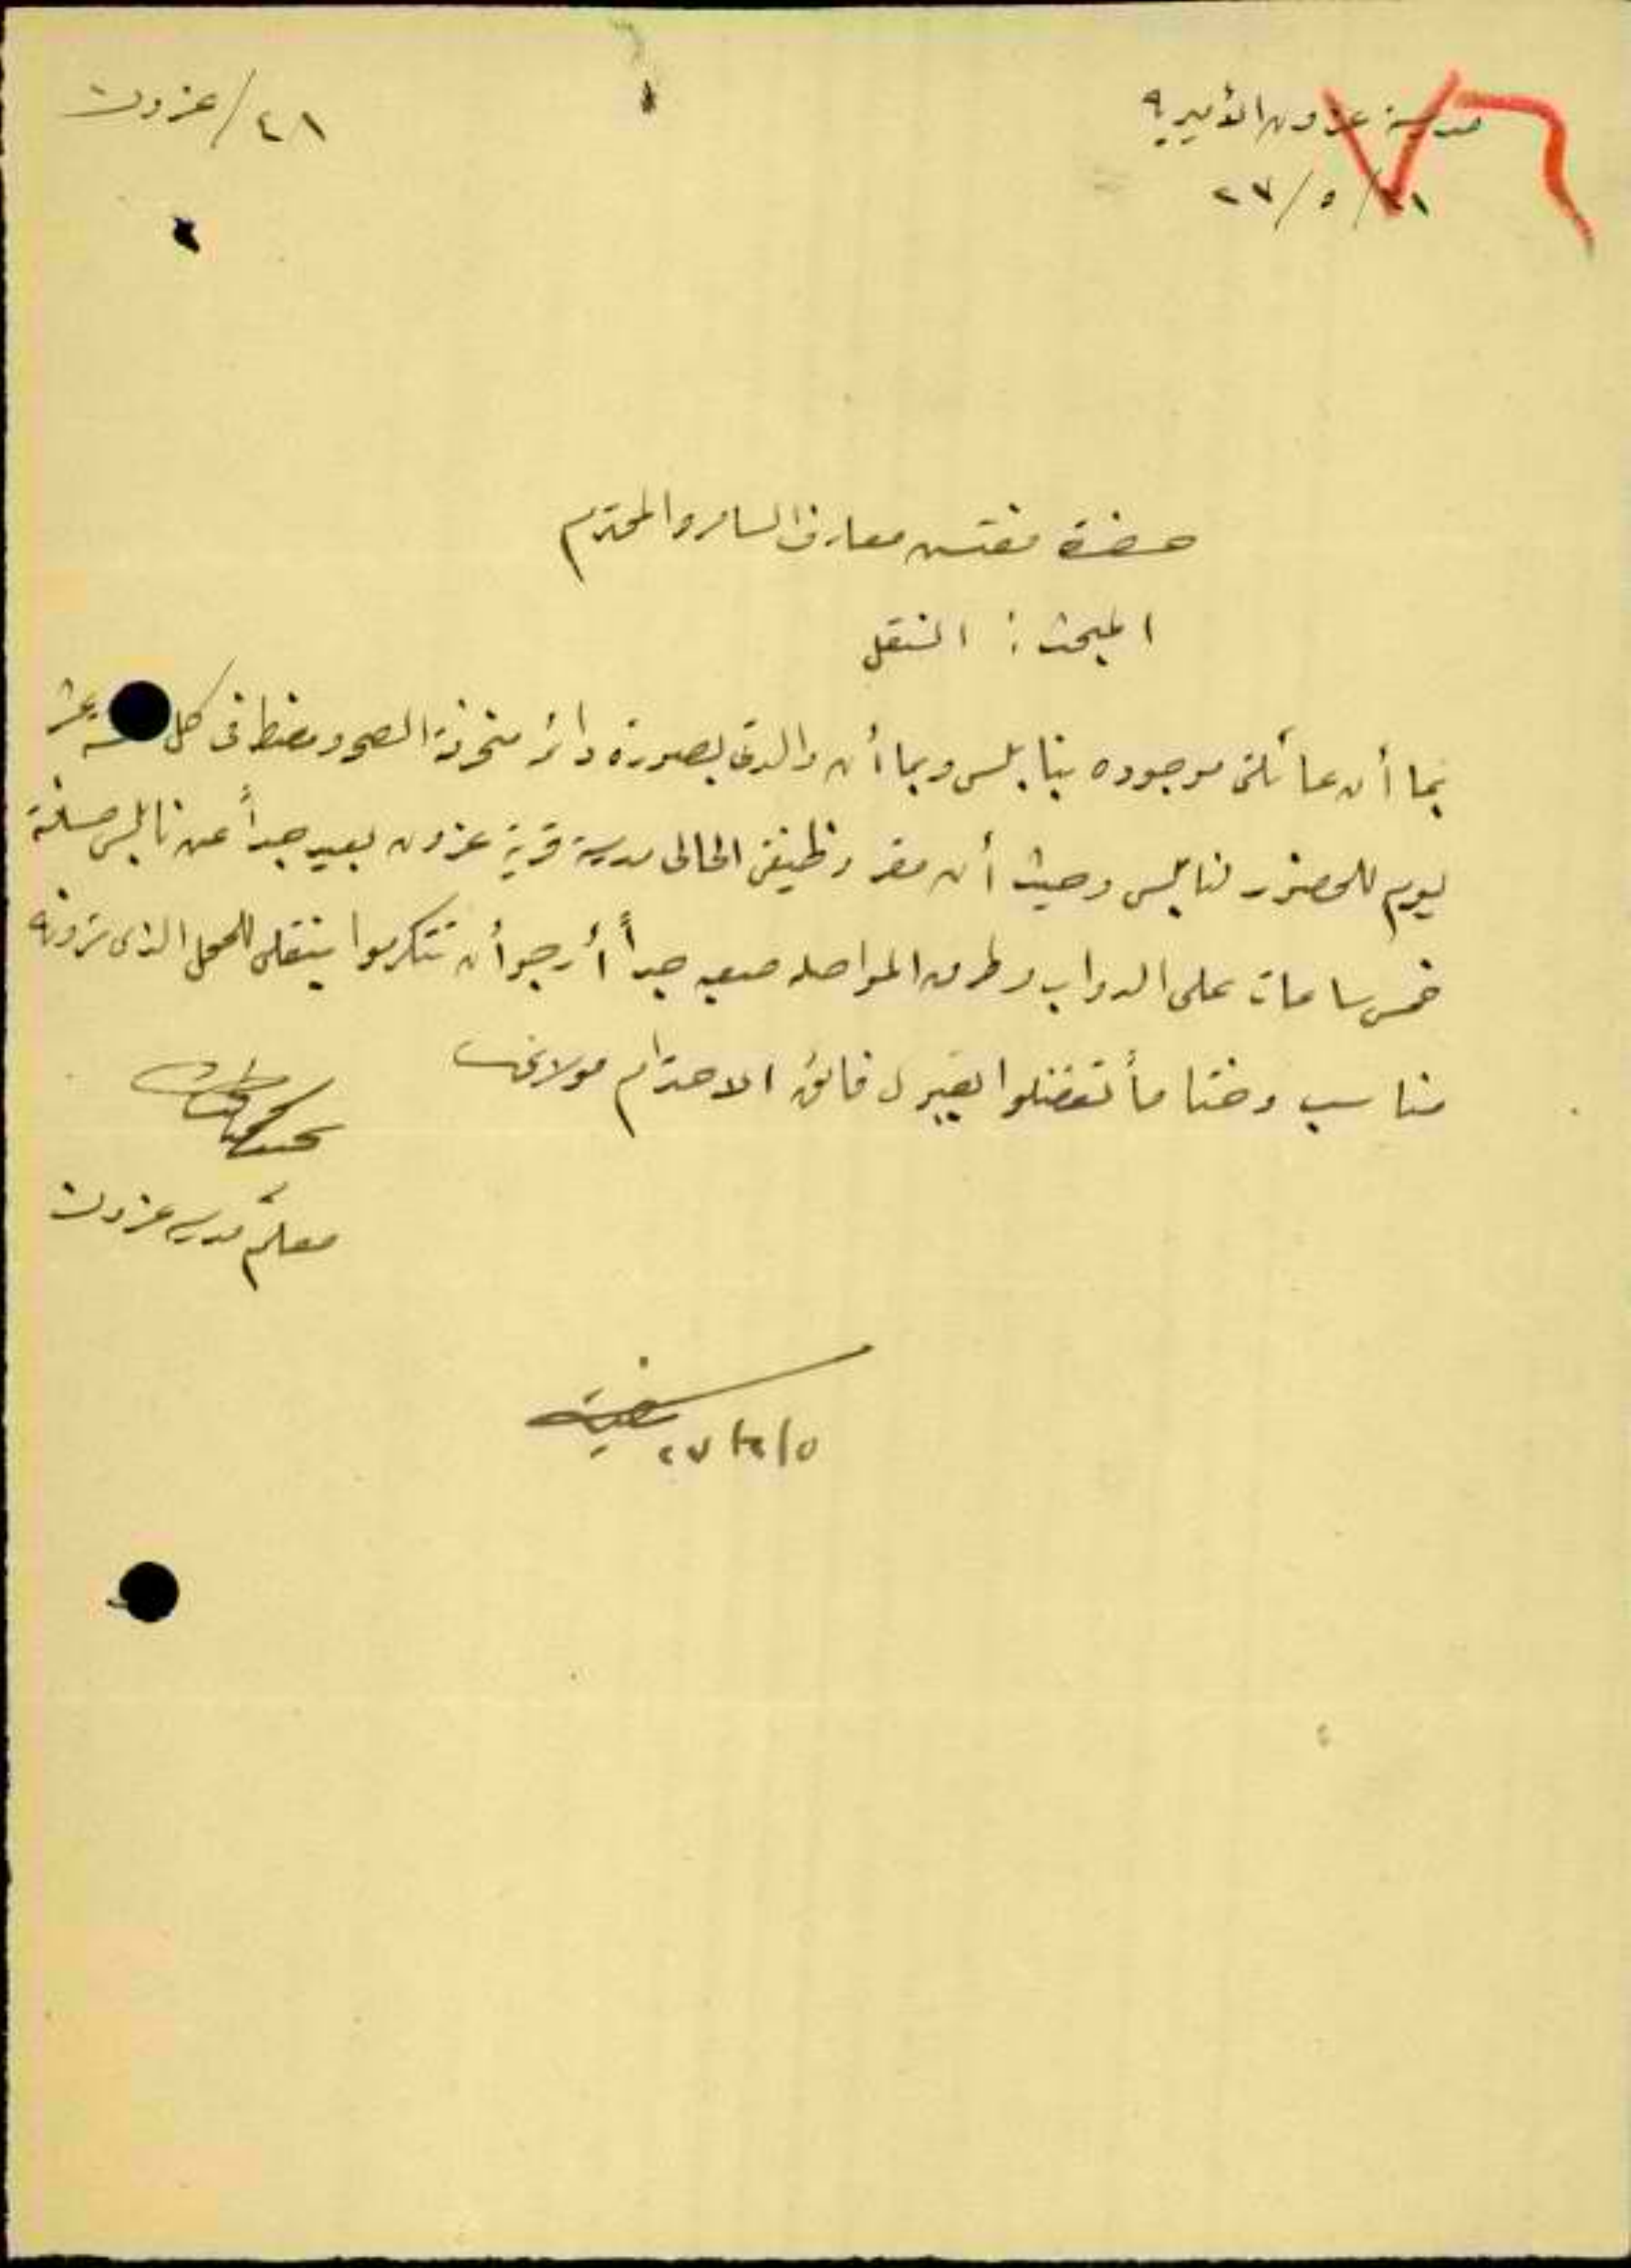 مدرسة عزون الأميرية
٣١/٥/٢٧
٤١/عزون
حضرة مفتش معارف السامره المحترم
المبحث: التنقل
بما أن عائلتى موجوده بنابلس وبما أن والدتى بصورة دائمة منحرفة الصحه ومضطر فى كل خمسة عشر
يوم للحضور لنابلس وحيث أن مقر وظيفتى الحالى مدرسة قرية عزون بعيد جداً عن نابلس مسافة
خمس ساعات على الدواب وطرق المواصله صعبه جداً أرجو أن تتكرموا بنقلى للمحل الذى ترونه
مناسب وختاماً تفضلوا بقبول فائق الاحترام مولاى
معلم مدرسة عزون
٢٧/٦/٥